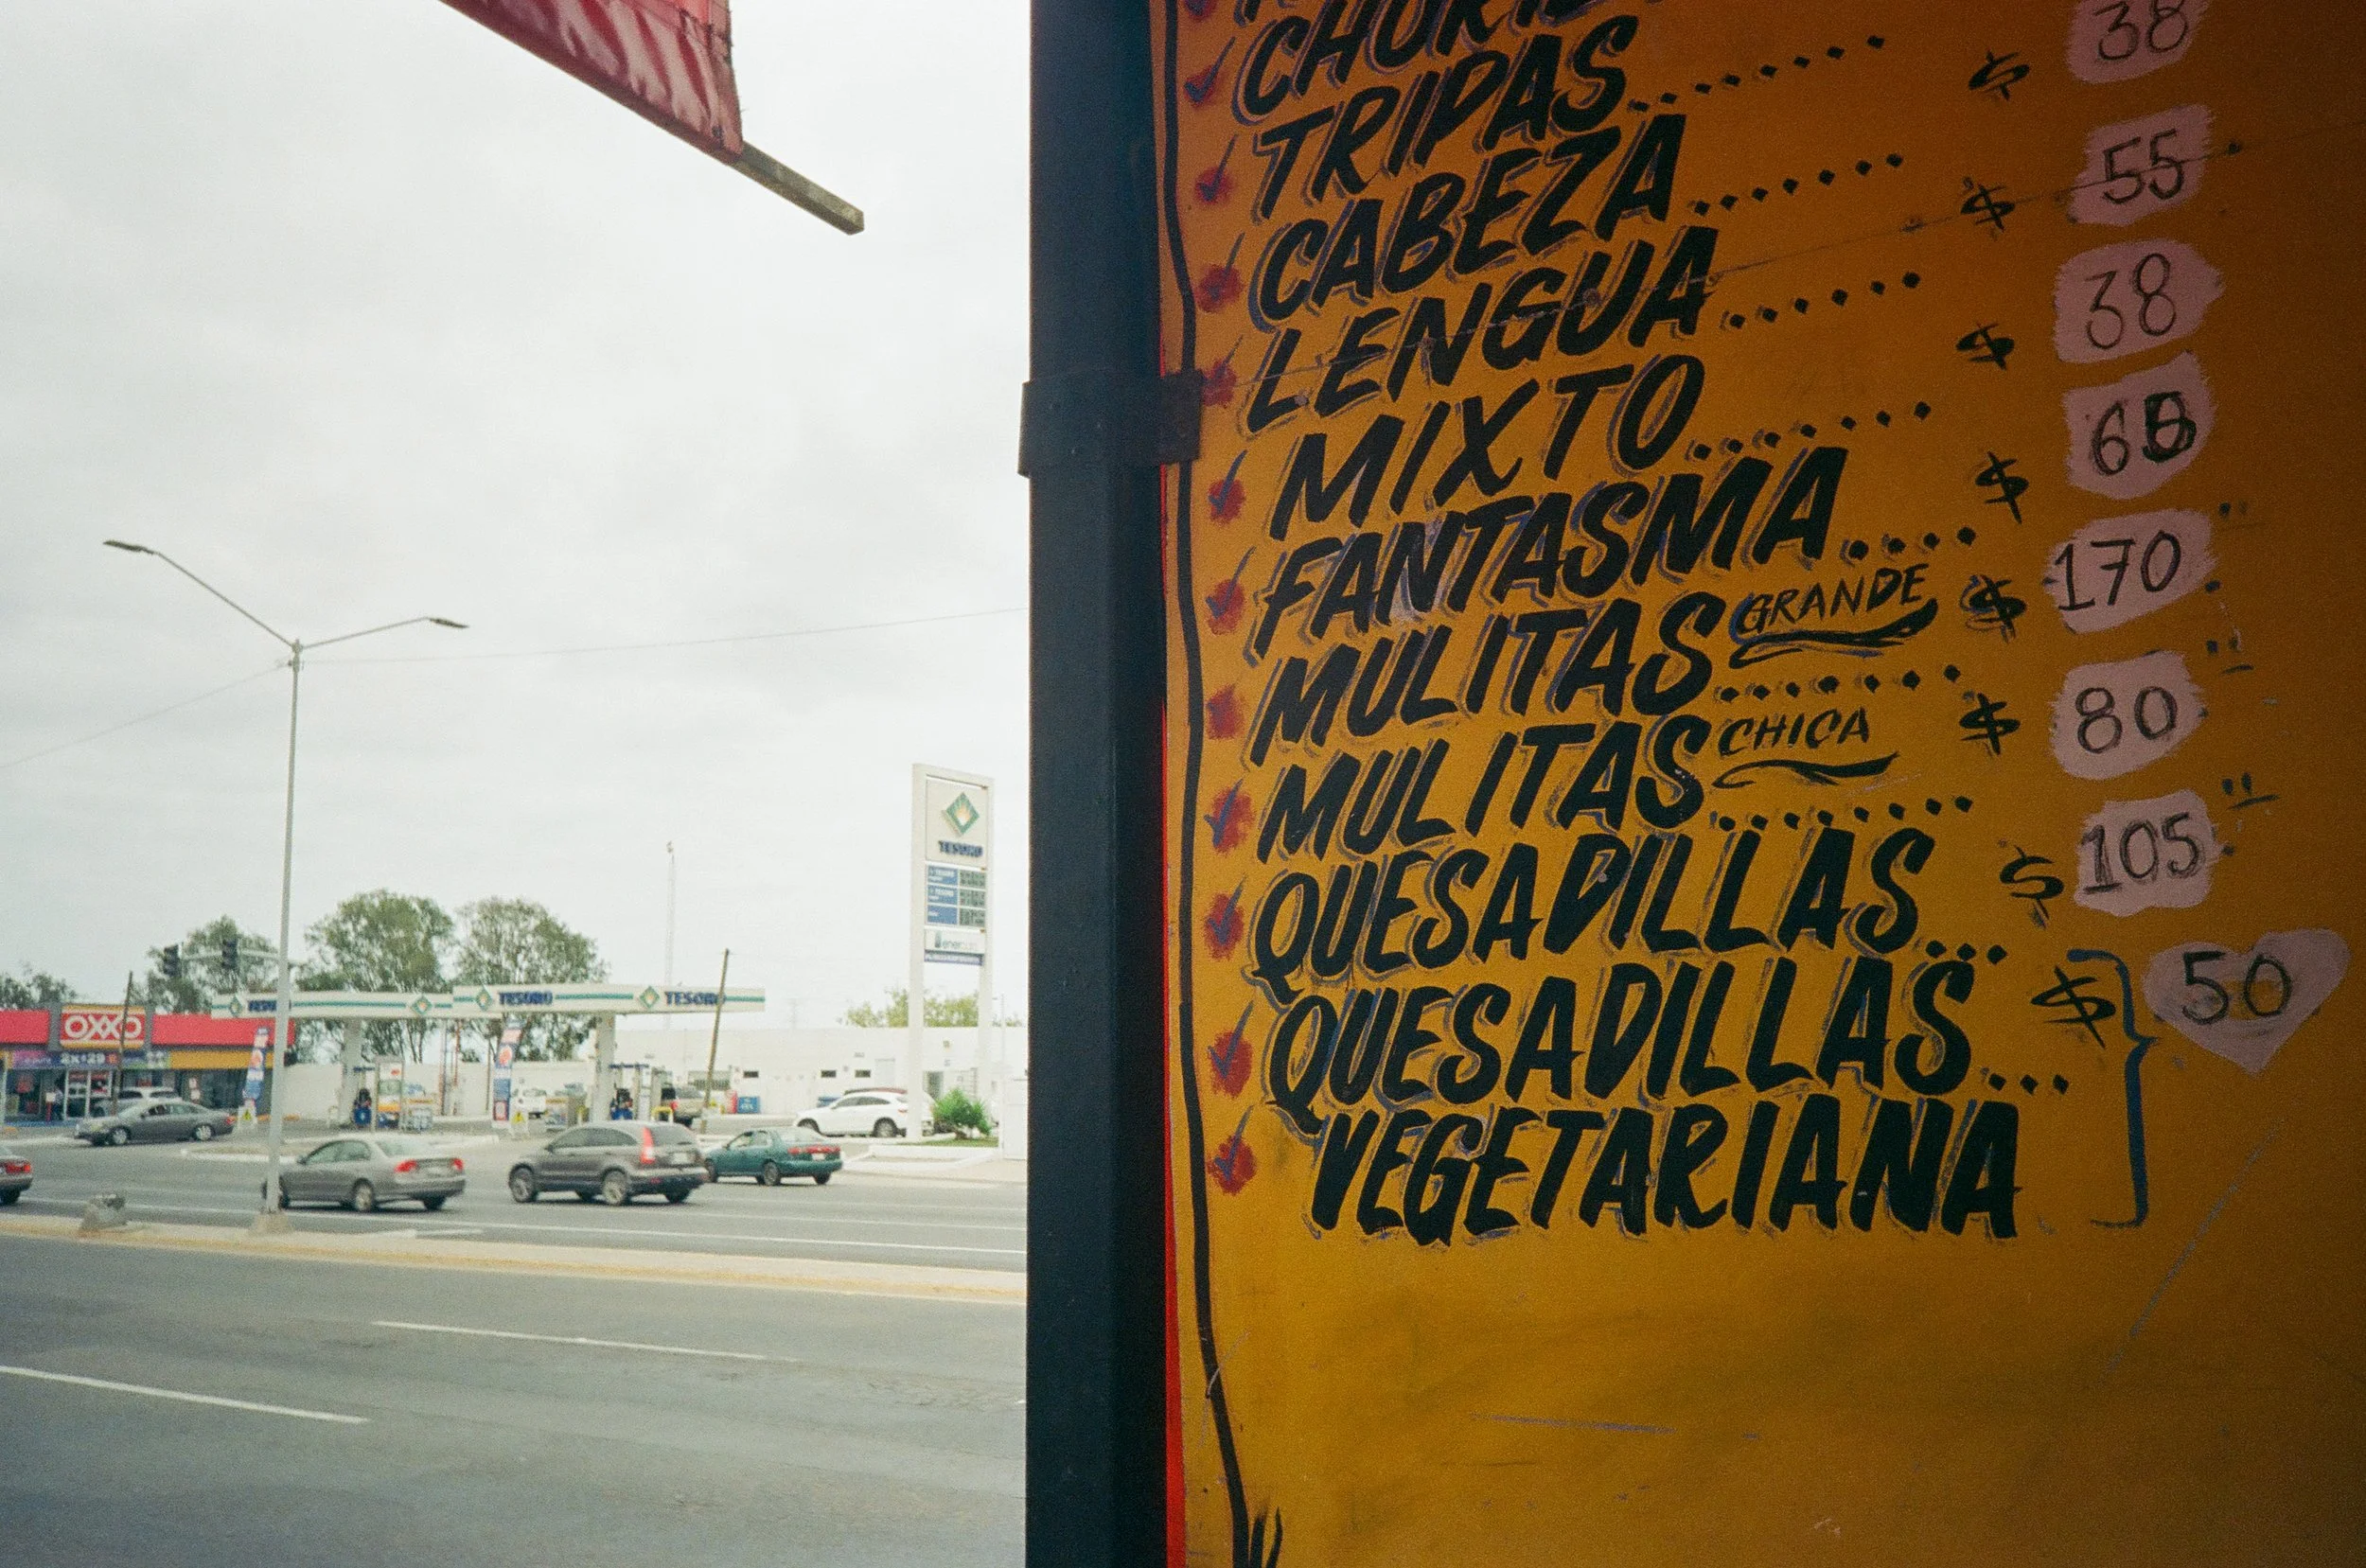 TRIPAS....... $ 38
CABEZA....... $ 55
LENGUA...... $ 38
MIXTO........ $
FANTASMA.... $ 170
MULITAS GRANDE ....... $ 80
MULITAS CHICA ........ $ 105
QUESADILLAS... $ 50
QUESADILLAS...
VEGETARIANA
TESORO
OXXO
TESORO
TESORO
2x$29